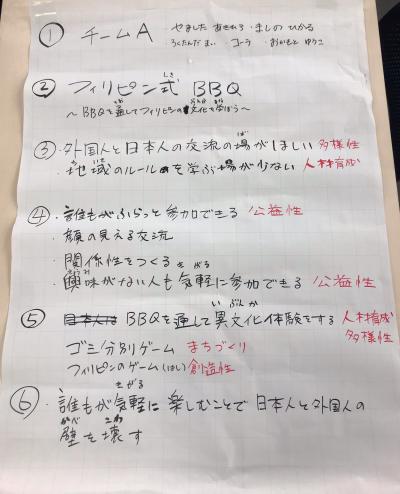 ① チームA やました あきひろ・ましの ひかる
ろくたんだ まい・コーラ・おかもと ゆうこ
② フィリピン式 BBQ
しき
～BBQを通してフィリピンの文化を学ぼう～
③・外国人と日本人の交流の場がほしい 多様性
・地域のルールを学ぶ場が少ない 人材育成
④・誰もがふらっと参加できる 公益性
・顔の見える交流
・関係性をつくる
・興味がない人も気軽に参加できる 公益性
⑤ 日本人は BBQを通して異文化体験をする 人材育成
多様性
ゴミ分別ゲーム まちづくり
フィリピンのゲーム(はし) 創造性
⑥・誰もが気軽に楽しむことで日本人と外国人の
壁を壊す